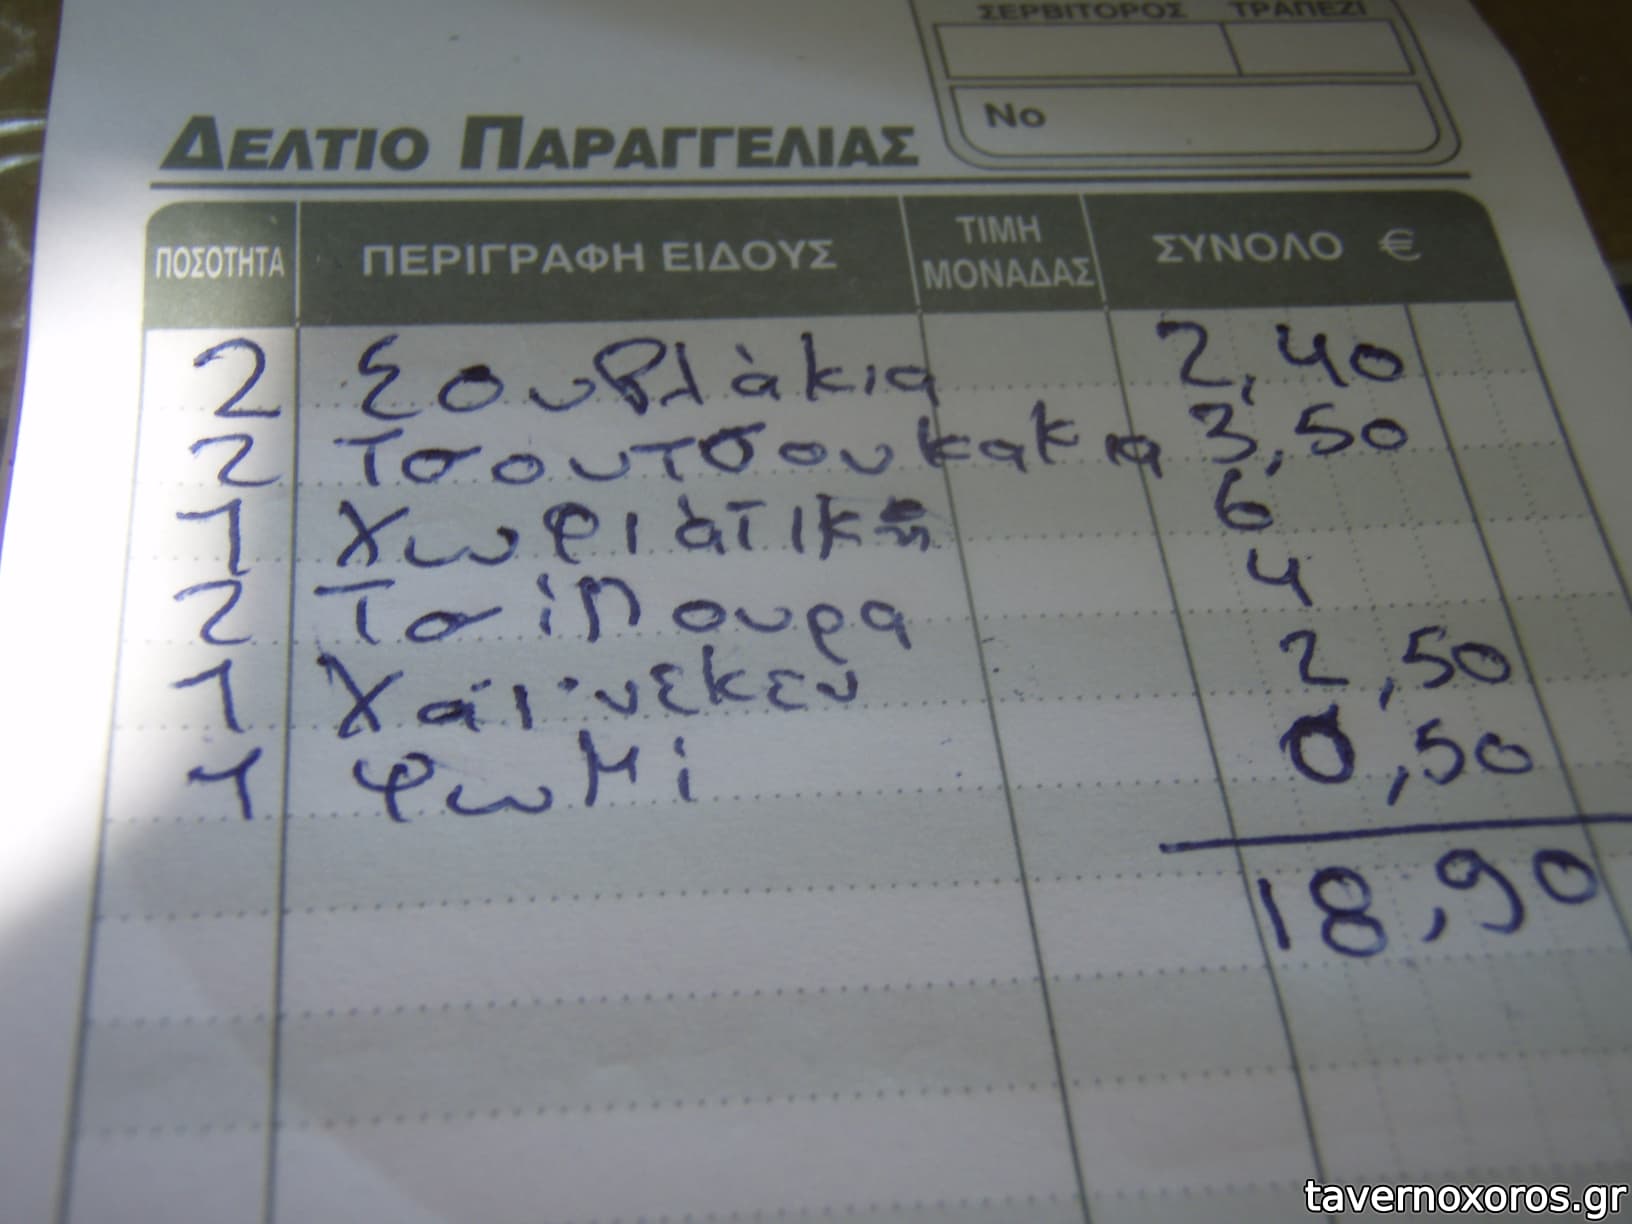 ΣΕΡΒΙΤΟΡΟΣ ΤΡΑΠΕΖΙ
Νο
ΔΕΛΤΙΟ ΠΑΡΑΓΓΕΛΙΑΣ
ΠΟΣΟΤΗΤΑ ΠΕΡΙΓΡΑΦΗ ΕΙΔΟΥΣ ΤΙΜΗ ΜΟΝΑΔΑΣ ΣΥΝΟΛΟ €
2 Σουβλάκια 2,40
2 Τσουτσουκακια 3,50
1 Χωριάτικη 6
2 Τσίπουρα 4
1 Χάινεκεν 2,50
1 Ψωμί 0,50
18,90
tavernoxoros.gr